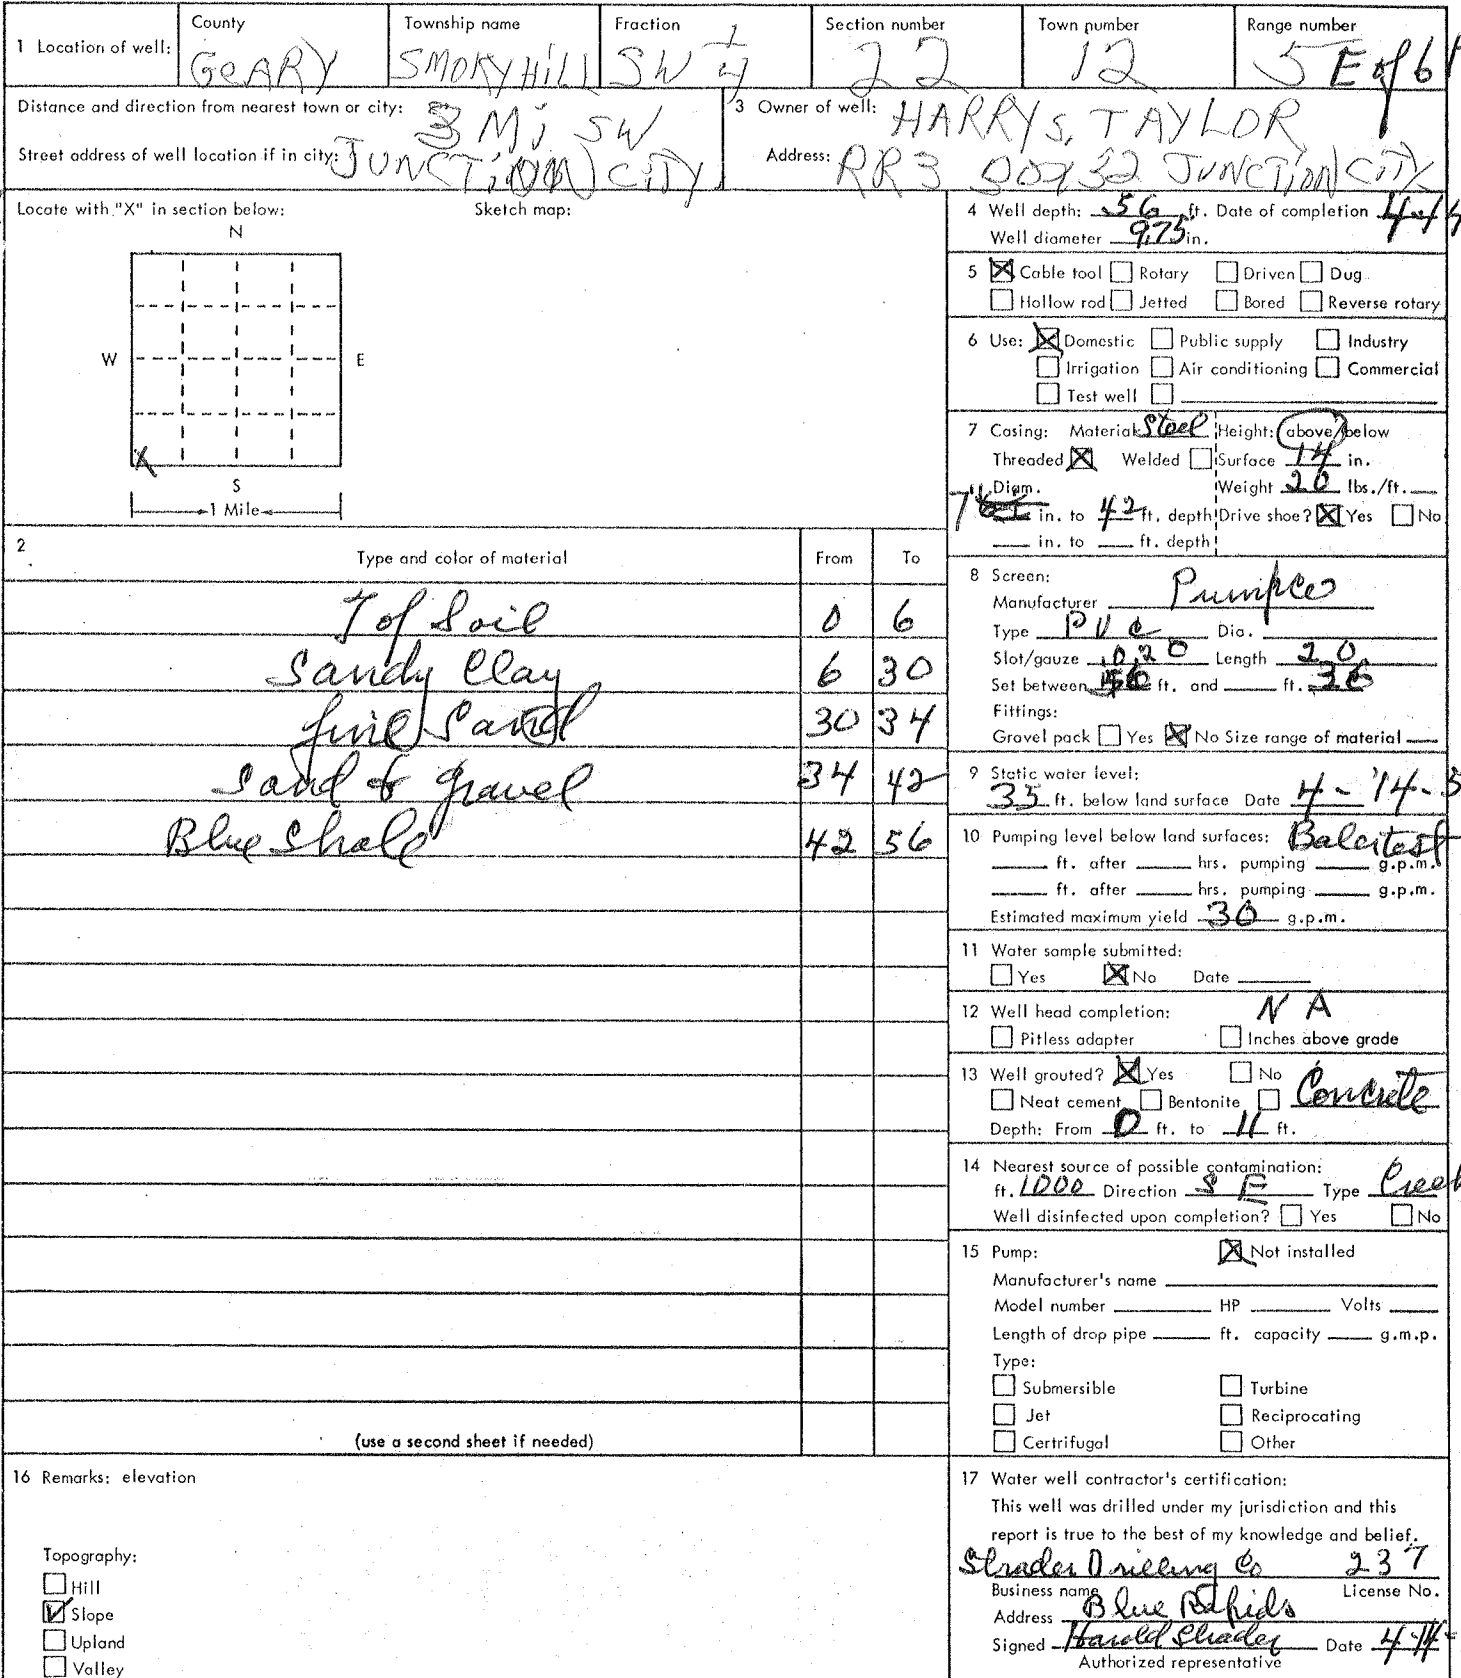 1 Location of well:
County
GEARY
Township name
SMOKY HILL
Fraction
SW 1/4
Section number
22
Town number
12
Range number
5 E of 6
Distance and direction from nearest town or city: 3 Mi SW
Street address of well location if in city: JUNCTION CITY
3 Owner of well: HARRY S. TAYLOR
Address: RR3 Box 32 JUNCTION CITY
Locate with "X" in section below:
Sketch map:
N
W
E
X
S
1 Mile
4 Well depth: 56 ft. Date of completion 4-14
Well diameter 9.75 in.
5 Cable tool Rotary Driven Dug
Hollow rod Jetted Bored Reverse rotary
6 Use: Domestic Public supply Industry
Irrigation Air conditioning Commercial
Test well
7 Casing: Material Steel Height: above/below
Threaded Welded Surface 14 in.
Diam. Weight 20 lbs./ft.
7 in. to 42 ft. depth Drive shoe? Yes No
in. to ft. depth
2
Type and color of material From To
Top Soil 0 6
Sandy Clay 6 30
fine Sand 30 34
Sand & gravel 34 42
Blue Shale 42 56
(use a second sheet if needed)
8 Screen:
Manufacturer Pumpco
Type PVC Dia.
Slot/gauze .020 Length 20
Set between 56 ft. and ft. 36
Fittings:
Gravel pack Yes No Size range of material
9 Static water level:
35 ft. below land surface Date 4-14-
10 Pumping level below land surfaces:
ft. after hrs. pumping g.p.m.
ft. after hrs. pumping g.p.m.
Estimated maximum yield 30 g.p.m.
11 Water sample submitted:
Yes No Date
12 Well head completion: N A
Pitless adapter Inches above grade
13 Well grouted? Yes No
Neat cement Bentonite Concrete
Depth: From 0 ft. to 11 ft.
14 Nearest source of possible contamination:
ft. 1000 Direction S E Type Creek
Well disinfected upon completion? Yes No
15 Pump: Not installed
Manufacturer's name
Model number HP Volts
Length of drop pipe ft. capacity g.m.p.
Type:
Submersible Turbine
Jet Reciprocating
Certrifugal Other
16 Remarks: elevation
Topography:
Hill
Slope
Upland
Valley
17 Water well contractor's certification:
This well was drilled under my jurisdiction and this
report is true to the best of my knowledge and belief.
Strader Drilling Co 237
Business name License No.
Address Blue Rapids
Signed Harold Strader Date 4-14-
Authorized representative